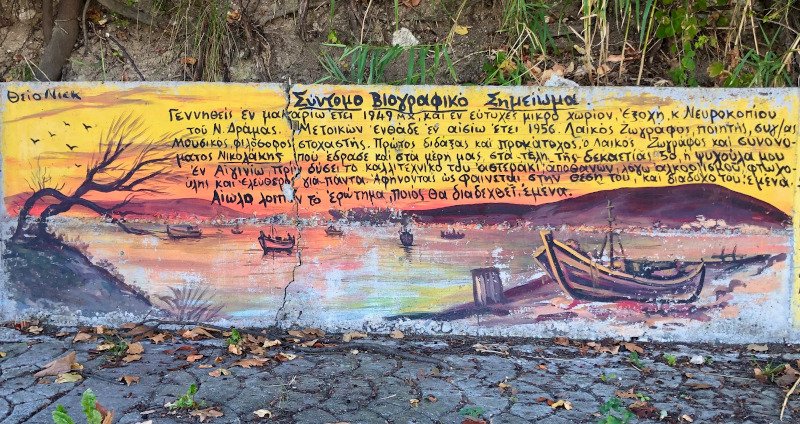 Θείο Νιcκ
Σύντομο Βιογραφικό Σημείωμα
Γεννηθείς εν μακαρίω έτει 1949 μ.χ, και εν ευτυχές μικρό χωρίον, Εξοχή, κ. Νευροκοπίου
του Ν. Δράμας. Μετοικών ενθάδε εν αισίω έτει 1956. Λαϊκός Ζωγράφος, ποιητής,
Μουσικός, φιλόσοφος, στοχαστής. Πρώτος διδάξας και προκάτοχος, ο Λαϊκός Ζωγράφος και συνονό-
ματος Νικολάκης που έδρασε και στα μέρη μας, στα τέλη της δεκαετίας 50
εν Αιγινίω, πριν δύσει το καλλιτεχνικό του αστεράκι, αποθανών, λόγω αλκοολισμού,
και ελευθερία για πάντα. Αφήνοντας ως φαίνεται στην θέση του, και διάδυχό του, εμένα.
το ερώτημα, ποιός θα διαδεχθεί, εμένα.